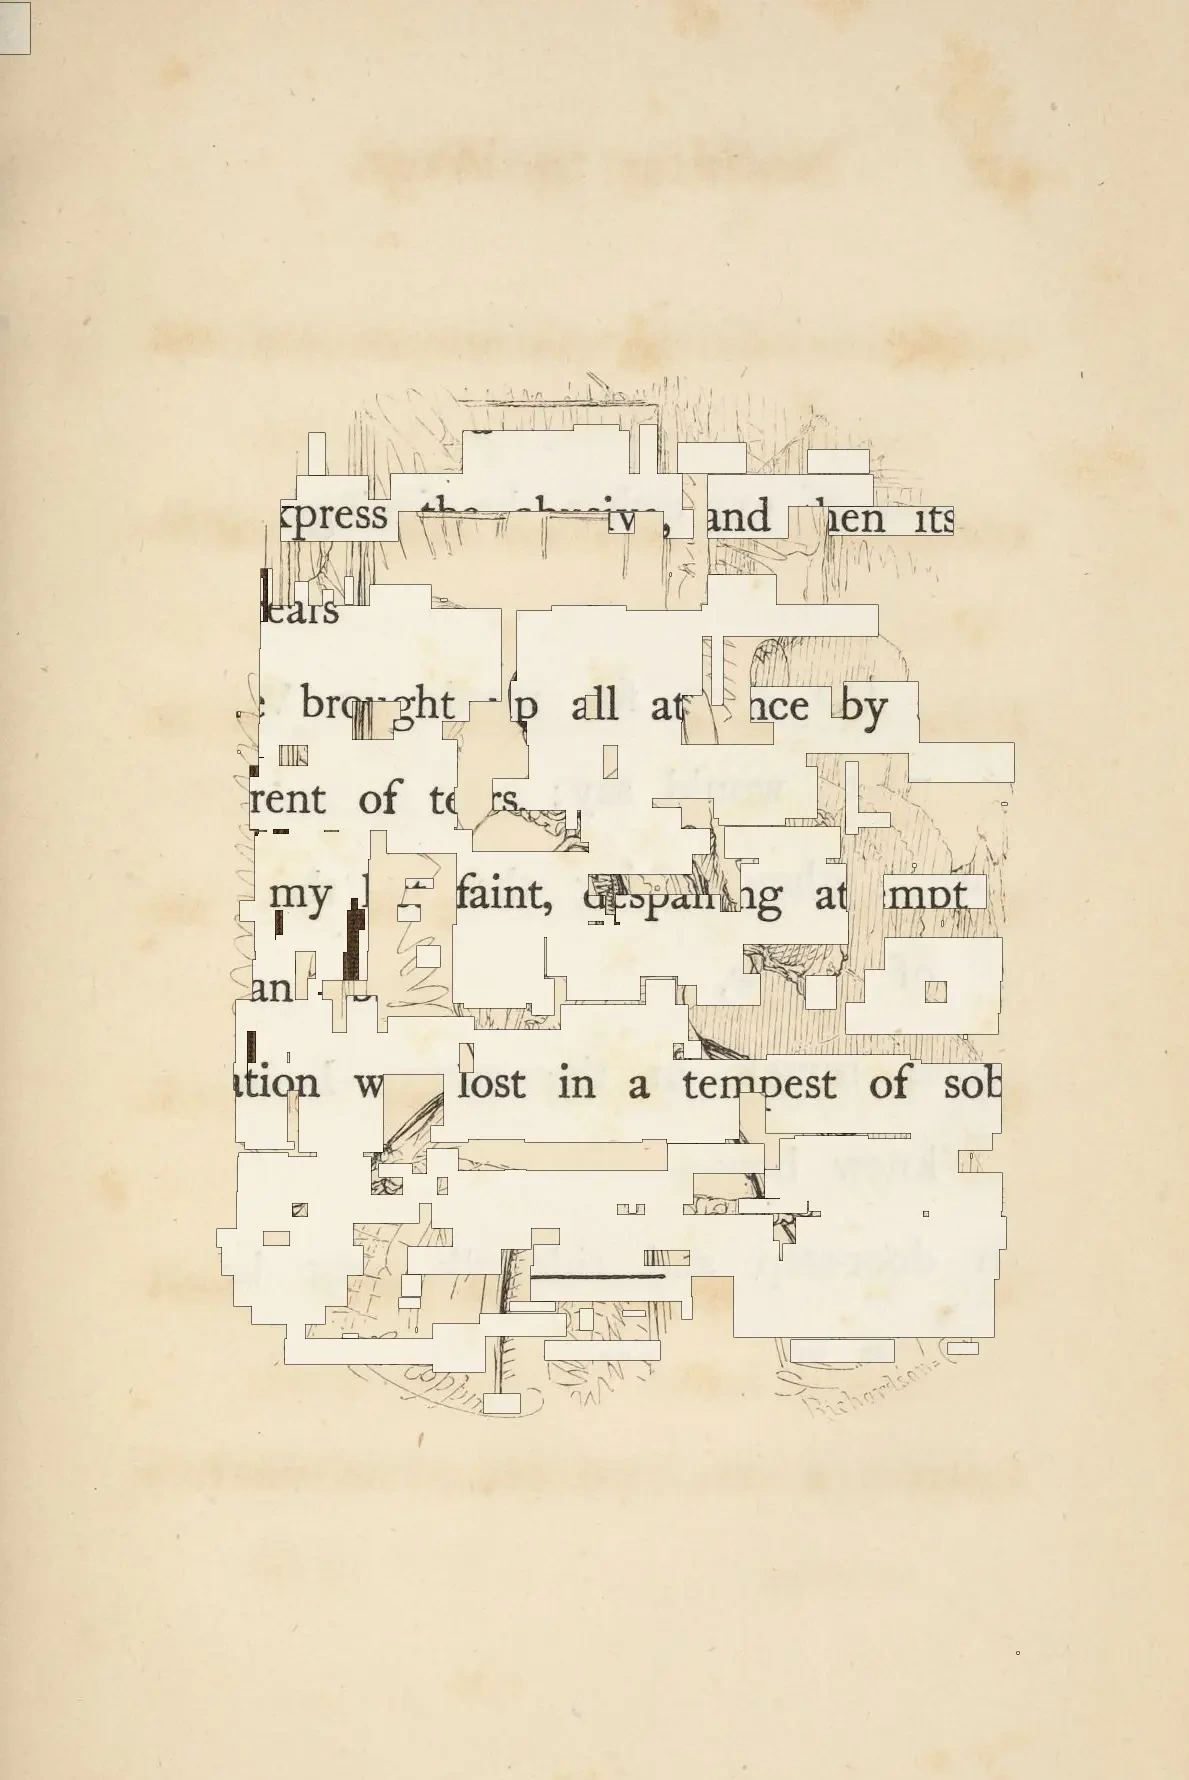 xpress the abusive, and hen its
ears
brought up all at nce by
rent of te rs.
my faint, despairing at empt
an
ation w lost in a tempest of sob
Coppin
Richardson